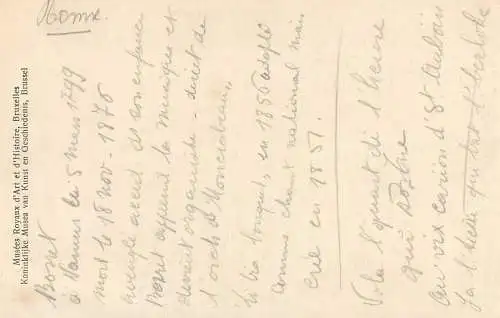 Rome.
Musées Royaux d'Art et d'Histoire, Bruxelles
Koninklijke Musea van Kunst en Geschiedenis, Brussel
Bosret
à Namur le 5 mars 1799
mort le 18 nov - 1876
aveugle accid. dès son enfance
Bosret apprend la musique et
devint organiste direct de
l'orch de Moncrabeau.
Li bia bouquet, en 1856 adopté
comme chant national mais
crée en 1851.
Vola l'quart de l'heure
qui sone
Au vix carion d' St Aubin